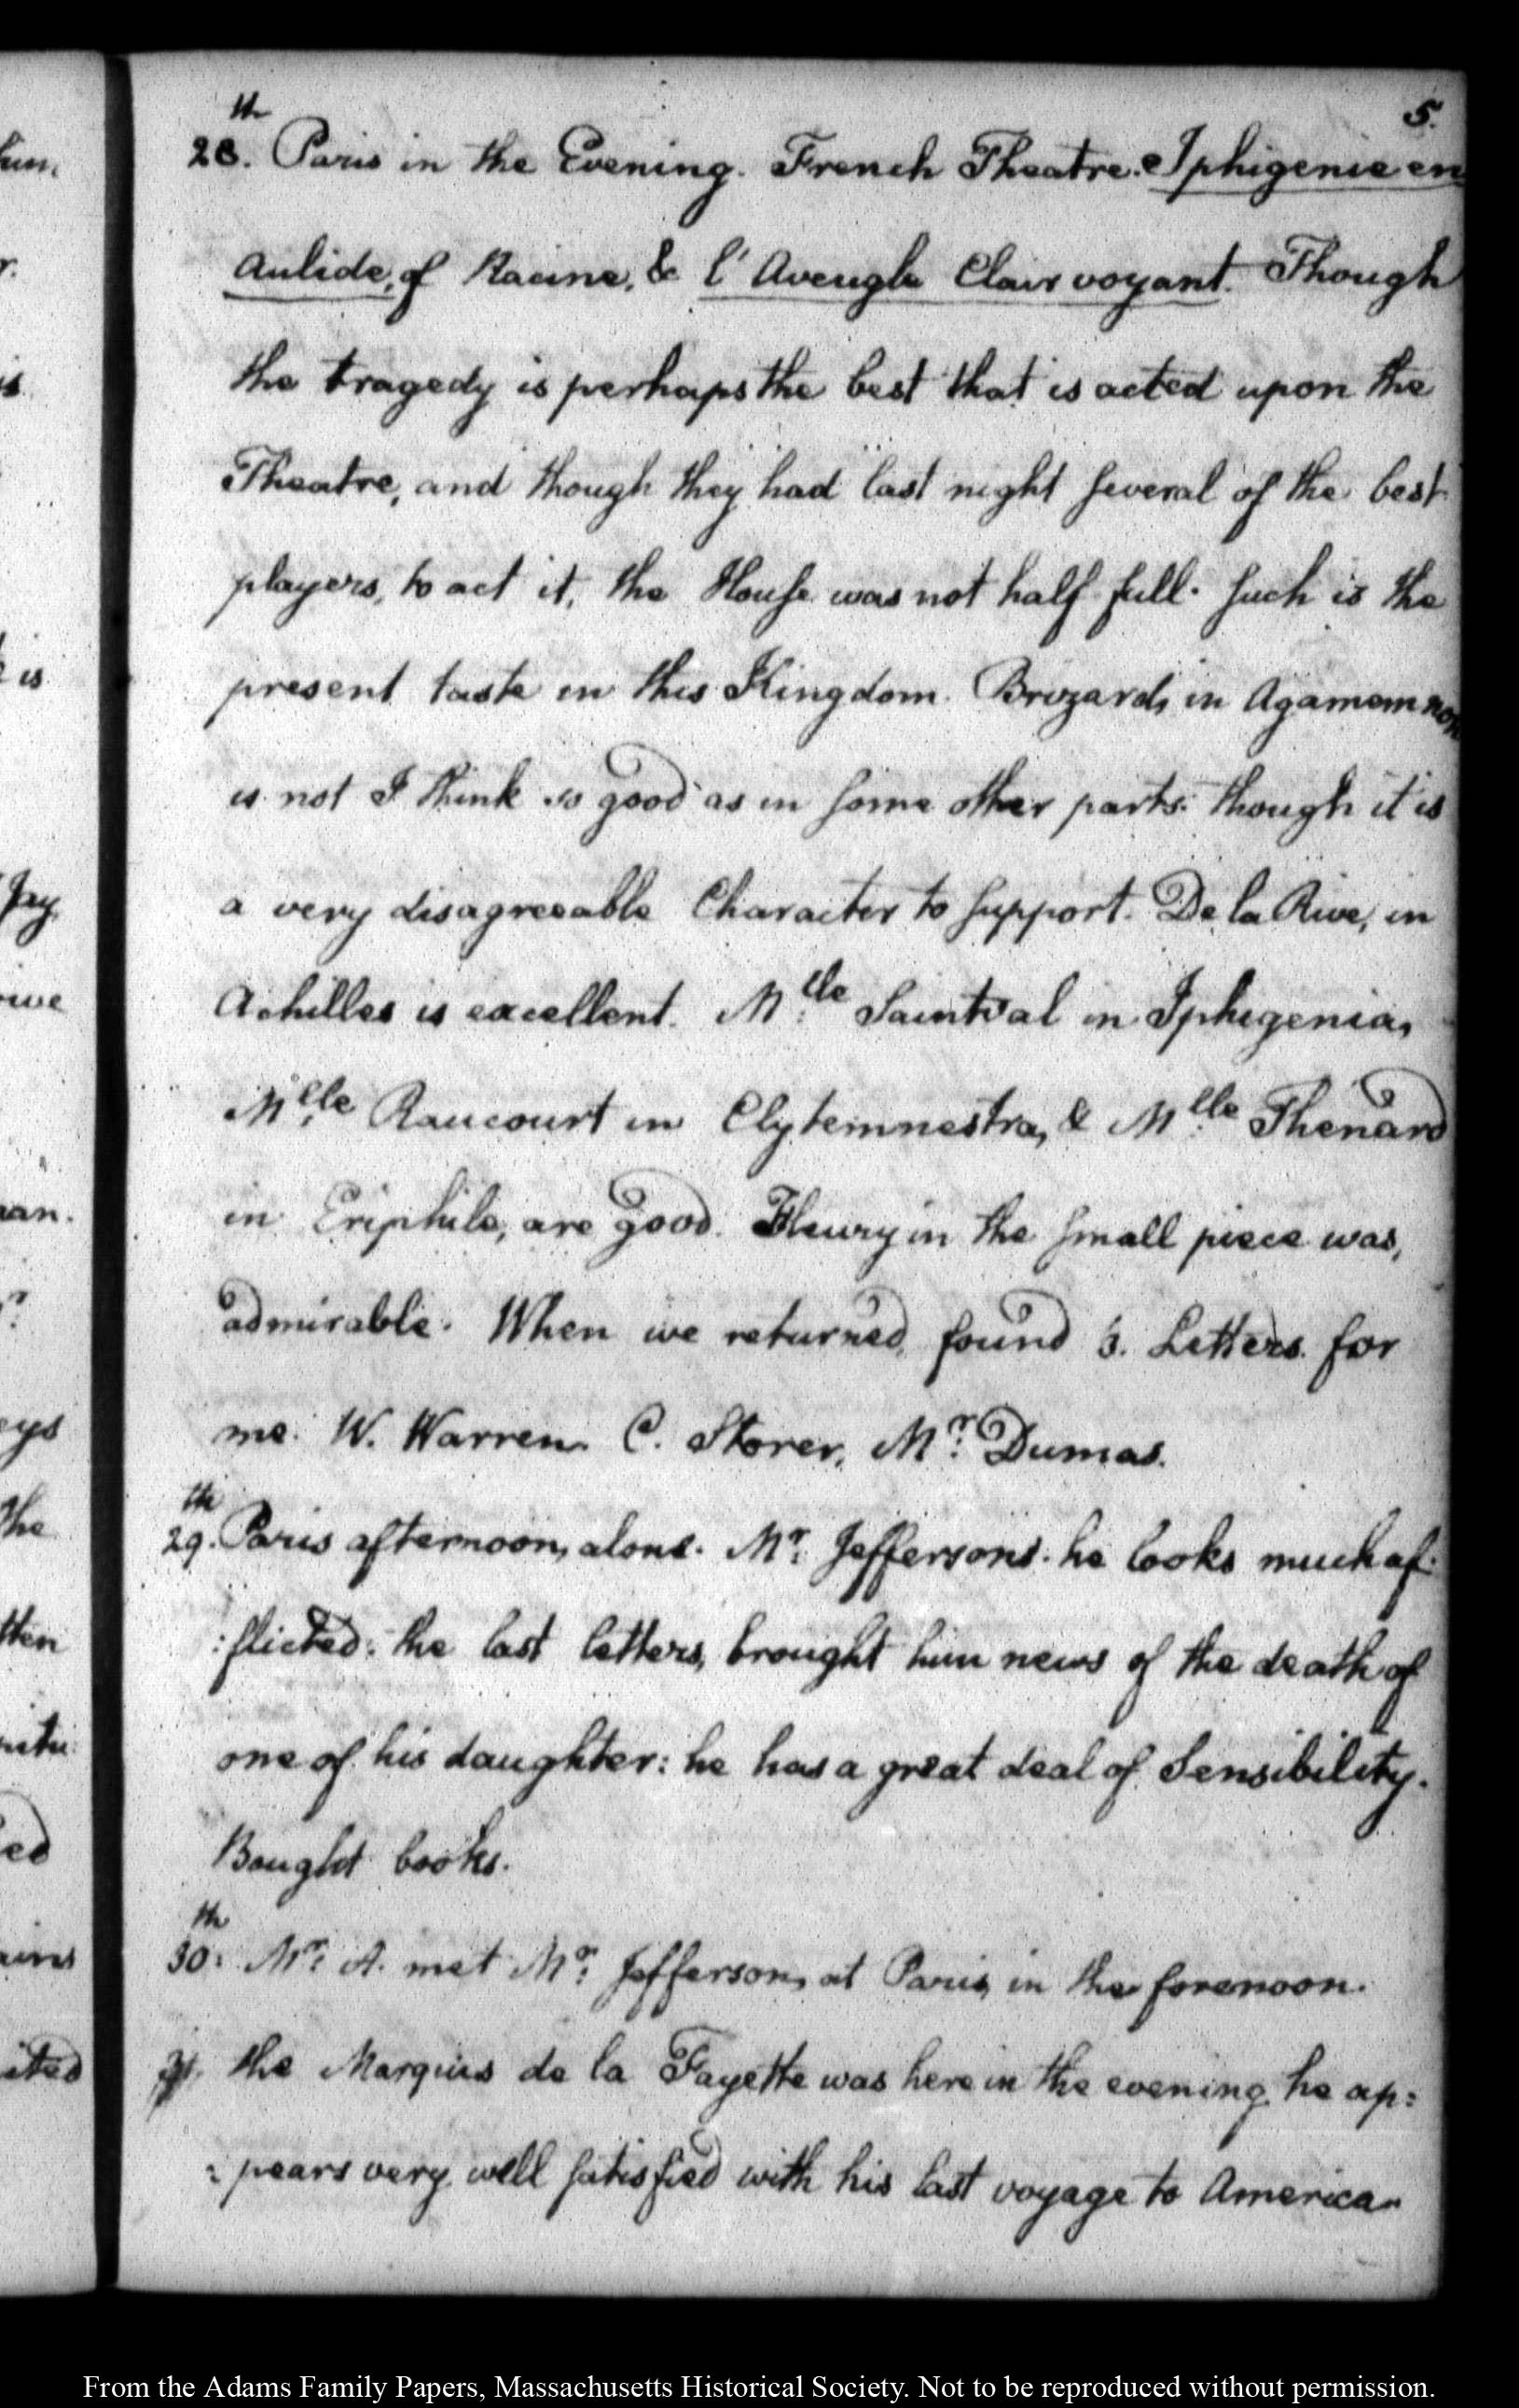 5.
28.th Paris in the Evening. French Theatre. Iphigenie en
Aulide, of Racine, & l'Aveugle Clairvoyant. Though
the tragedy is perhaps the best that is acted upon the
Theatre, and though they had last night several of the best
players, to act it, the House was not half full. Such is the
present taste in this Kingdom. Brizard, in Agamemnon
is not I think so good as in some other parts: though it is
a very disagreeable Character to support. De la Rive, in
Achilles is excellent. M:lle Saintval in Iphigenia,
M:lle Raucourt in Clytemnestra, & M:lle Thenard
in Eriphile, are good. Fleury in the small piece was,
admirable. When we returned, found 3. Letters. for
me. W. Warren. C. Storer, Mr: Dumas.
29.th Paris afternoon, alone. Mr: Jeffersons. he looks much af:
:flicted: the last letters, brought him news of the death of
one of his daughter: he has a great deal of Sensibility.
Bought books.
30:th Mr: A. met Mr: Jefferson, at Paris, in the forenoon.
31. the Marquis de la Fayette was here in the evening. he ap:
:pears very well satisfied with his last voyage to America.
hum,
r.
is
is
Jay.
rive
man.
r?
eys
the
tten
ed
ains
ited
From the Adams Family Papers, Massachusetts Historical Society. Not to be reproduced without permission.